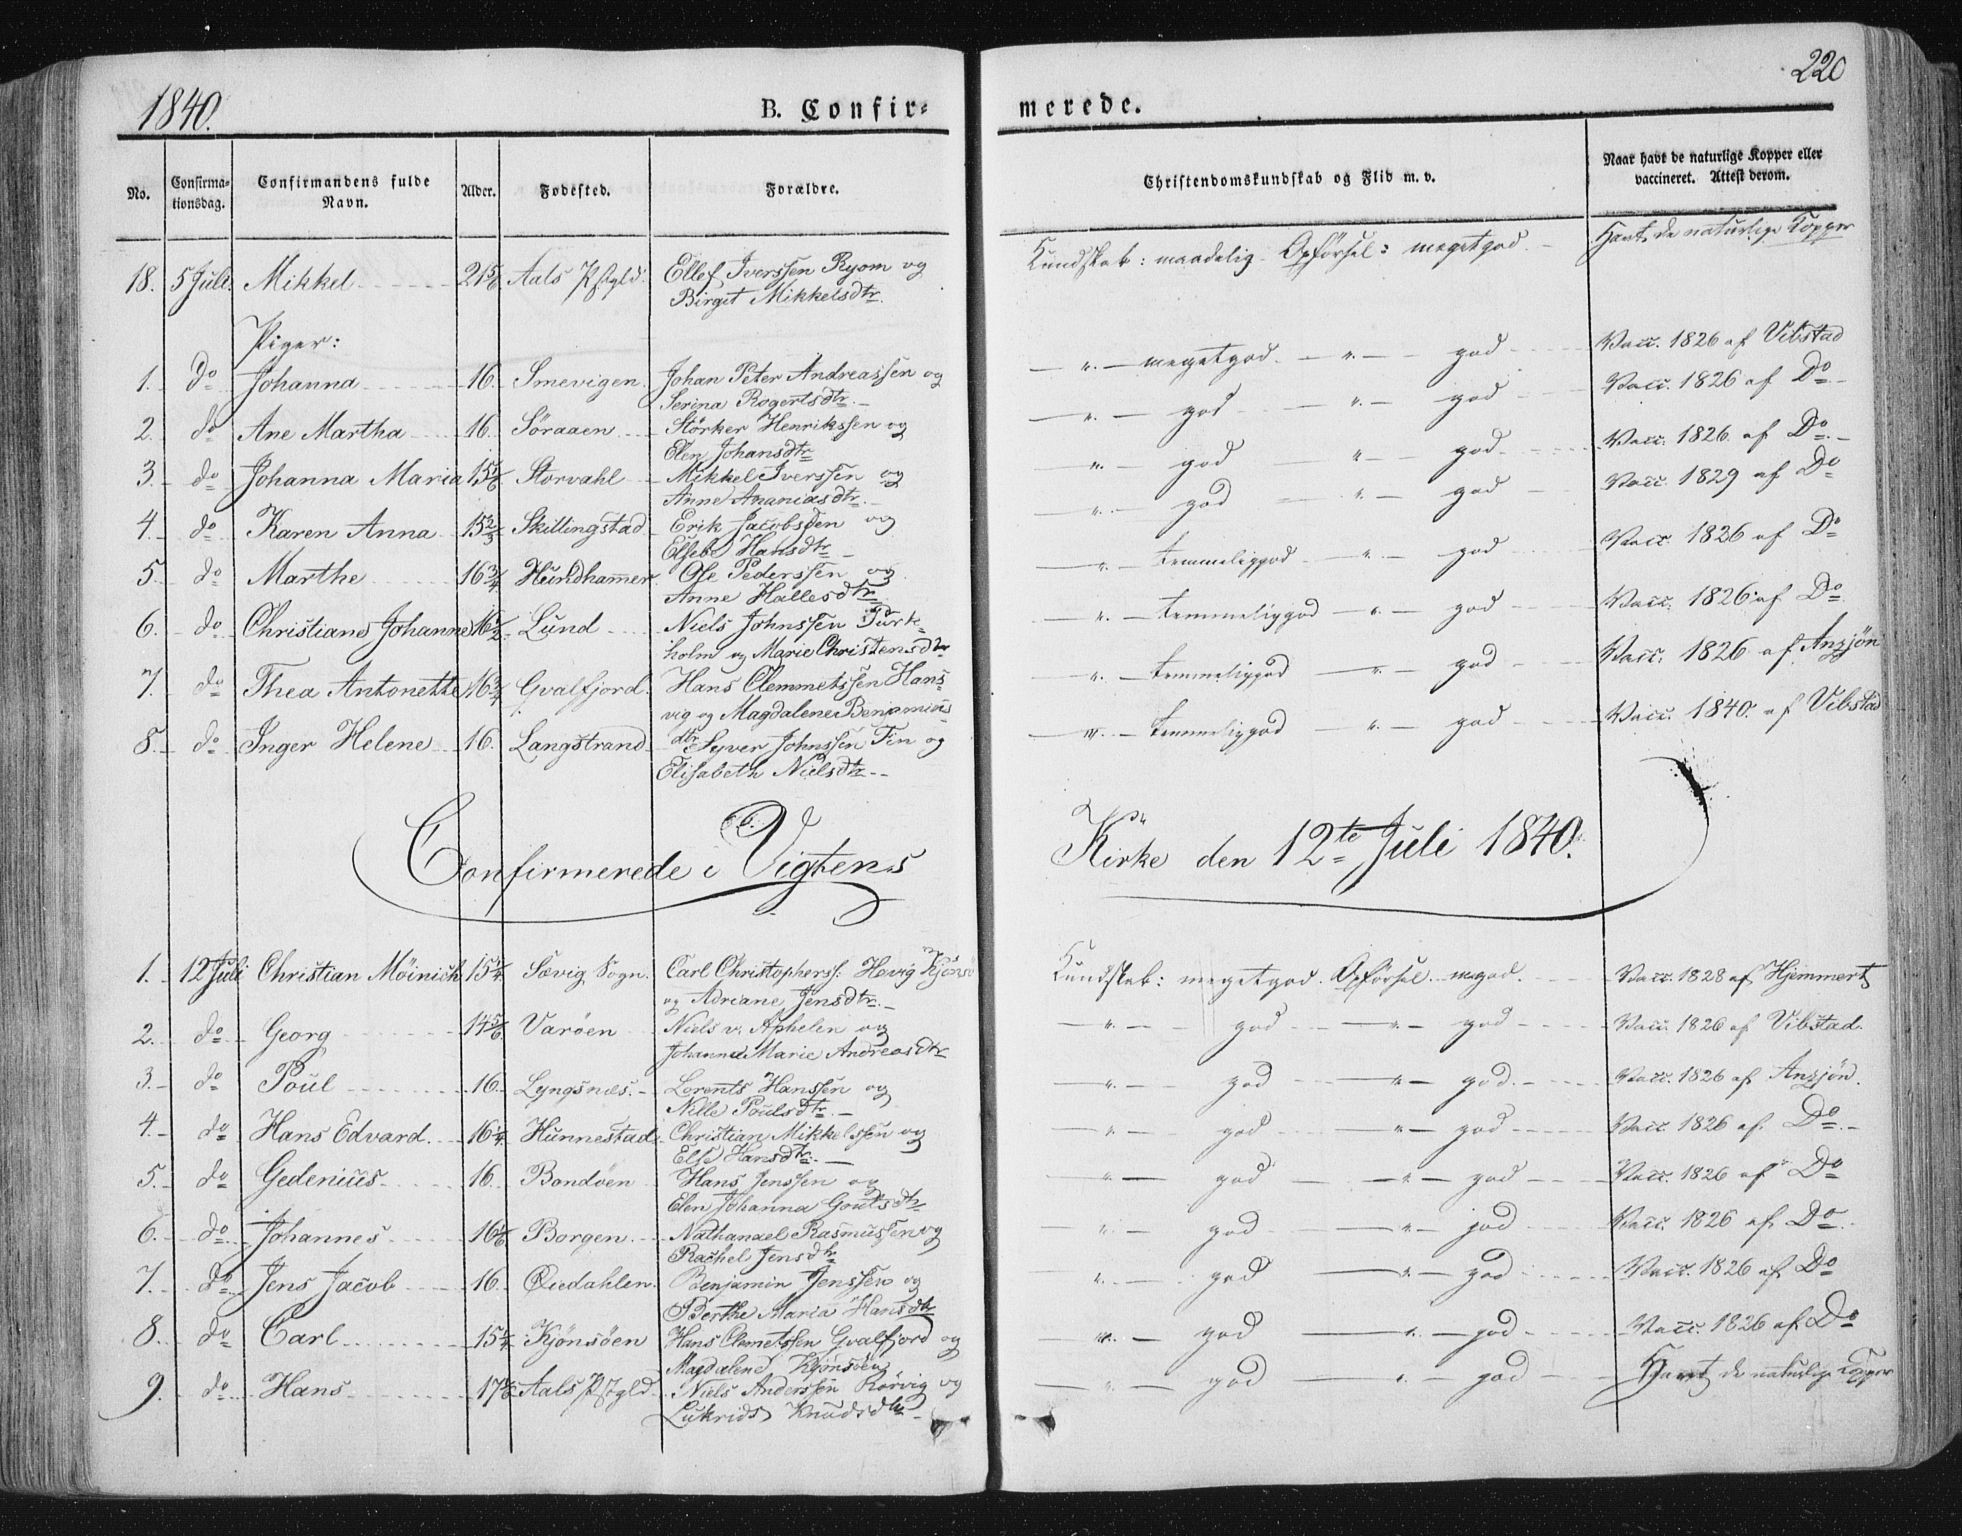 1840.
B. Confir-
merede.
220
No.
Confirma-
tionsdag.
Confirmandens fulde
Navn.
Alder.
Fødested.
Forældre.
Christendomskundskab og Flid m. v.
Naar havt de naturlige Kopper eller
vaccineret. Attest derom.
18. 5 Juli. Mikkel 21 5/6 Aals Pstgld. Ellef Iverssen Ryom og
Birgit Mikkelsdtr.
Kundskab: maadelig. Opførsel: megetgod. Havt de naturlige Kopper
Piger:
1. Do Johanna 16. Smevigen. Johan Peter Andreassen og
Serina Rogertsdtr.
" megetgod. " god Vacc. 1826 af Vibstad
2. do Ane Martha 16. Söraaen Störker Henrikssen og
Elen Johansdtr
" god " god Vacc. 1826 af Do
3. do Johanna Maria 15 5/6 Storvahl Mikkel Iverssen og
Anne Ananiasdtr.
" god " god Vacc. 1826 af Do
4. do Karen Anna 15 2/3 Skillingstad Erik Jacobsen og
Elsebe Hansdtr
" god " god Vacc. 1829 af Do
5. do Marthe 16 3/4 Hundhammer. Ole Pederssen og
Anne Hallesdtr
" temmeliggod " god Vacc. 1826 af Do
6. do Christiane Johanne 16 1/2 Lund Niels Johnssen Turk-
holm og Marie Christensdtr
" temmeliggod " god Vacc. 1826 af Do
7. do Thea Antonette 16 3/4 Gvalfjord. Hans Clemmetssen Hans-
vig og Magdalene Benjamins-
dtr
" temmeliggod " god Vacc. 1826 af Anzjön
8. do Inger Helene 16. Langstrand Syver Johnssen Fin og
Elisabeth Nielsdtr.
" temmeliggod " god Vacc. 1840. af Vibstad
Confirmerede i Vigtens
Kirke den 12te Juli 1840.
1. 12 Juli Christian Möinich 15 1/4 Sævig Sogn. Carl Christophers: Hovig Kjönsö
og Adriane Jensdtr.
Kundskab: megetgod. Opførsel. megod. Vacc. 1828 af Hjemmert
2. do Georg 14 5/6 Varöen Niels v. Aphelen og
Johanna Marie Andreasdtr
" god " god Vacc. 1826 af Vibstad.
3. do Poul 16. Lyngsnæs. Lorents Hanssen og
Nille Poulsdtr.
" god " god. Vacc. 1826 af Anzjön.
4. do Hans Edvard. 16 1/4 Hunnestad. Christian Mikkelssen og
Else Hansdtr.
" god " god Vacc. 1826 af Do
5. do Gedenius 16. Bondöen Hans Jenssen og
Elen Johanna Goutsdtr
" god " god Vacc. 1826 af Do
6. do Johannes 16 1/6 Borgen. Nathanael Rasmussen og
Rachel Jensdtr
" god " god Vacc. 1826 af Do
7. do Jens Jacob 16. Qvedahlen. Benjamin Jenssen og
Berthe Maria Hansdtr
" god " god Vacc. 1826 af Do
8. do Carl 15 1/4 Kjönsöen Hans Clemetssen Gvalfjord og
Magdalene Kjönsöen
" god " god Vacc. 1826 af Do
9. do Hans 17 Aals Pstgld Niels Anderssen Rörvig og
Lukrids Knudsdtr
" god " god Havt de naturlige Kopper